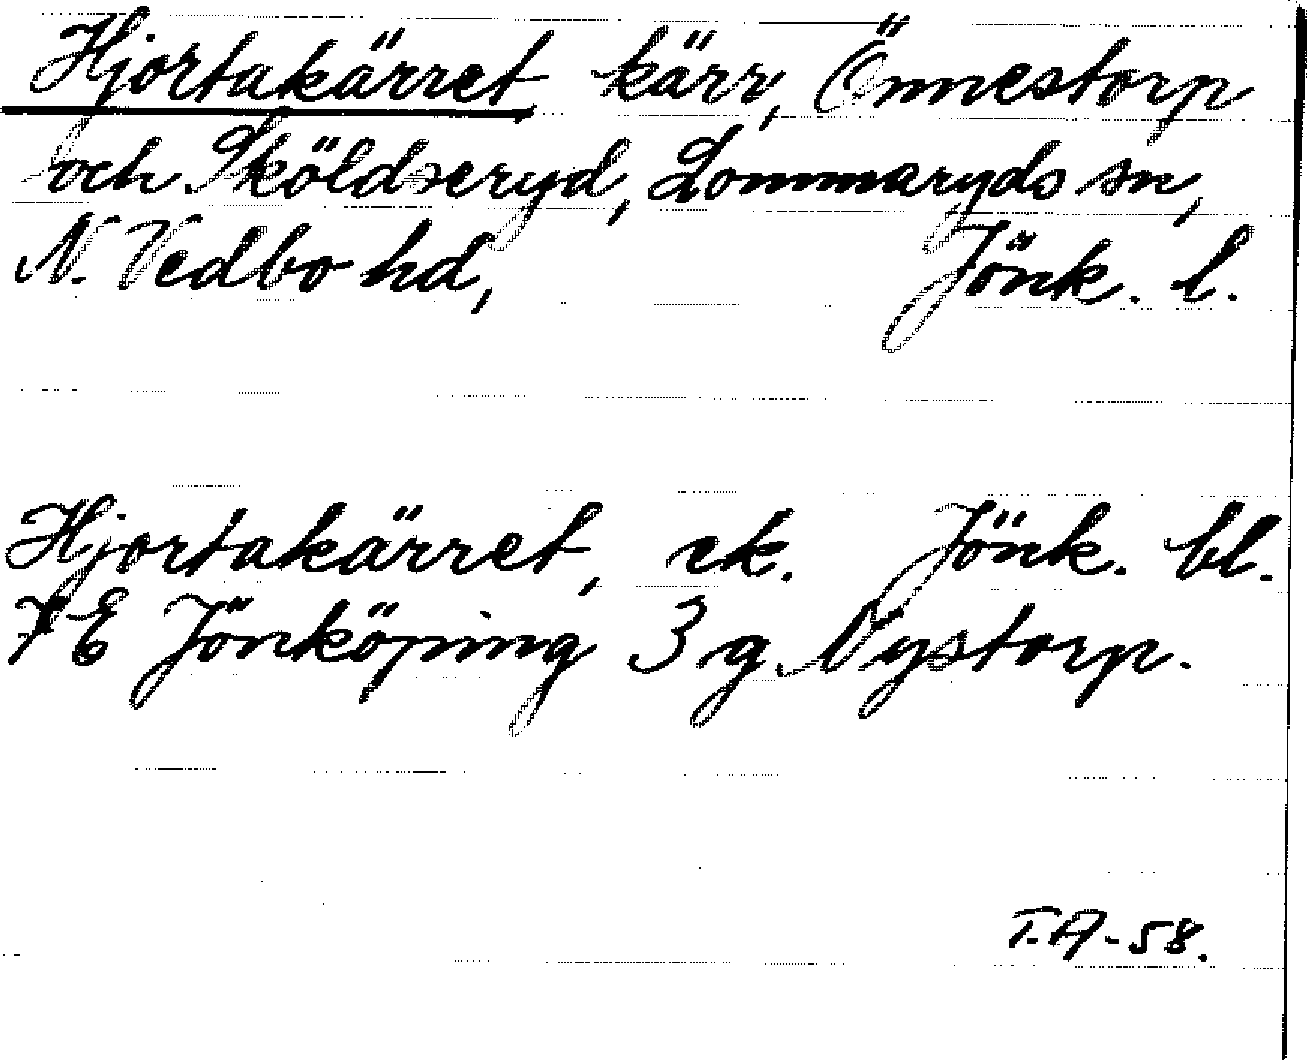 Hjortakärret kärr, Önnestorp
och Sköldseryd, Lommaryds sn,
N. Vedbo hd, Jönk. l.
Hjortakärret, ek. Jönk. bl.
7E Jönköping 3 g Nystorp.
T.A-58.